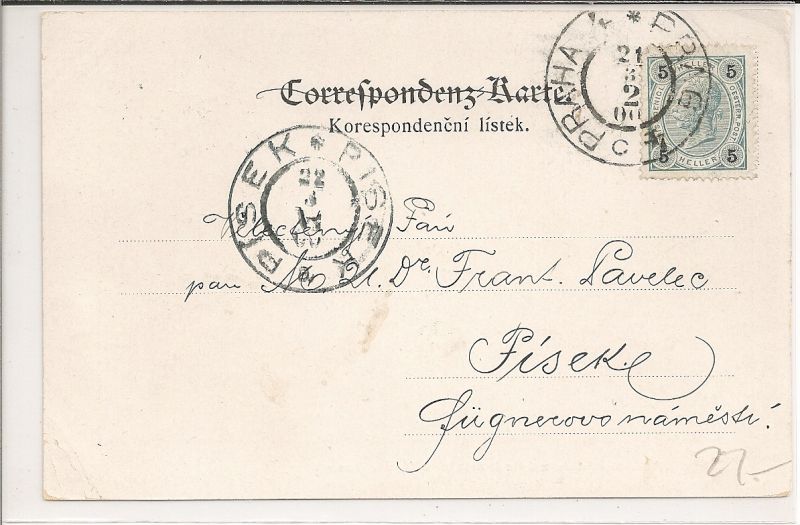 Correspondenz-Karte.
Korespondenční lístek.
PRAHA
21
3
00
5 HELLER 5
5 HELLER 5
PÍSEK * PISEK
22
Velectěný Pán
pan M. U. Dr. Frant. Pavelec
Písek
Fügnerovo náměstí.
27.-